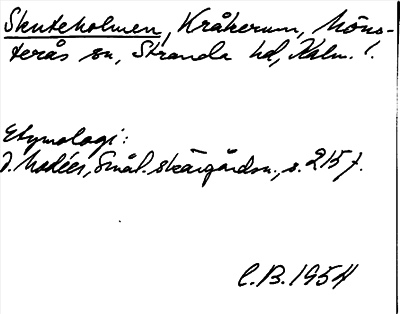 Skuteholmen, Kråkerum, Möns-
terås sn, Stranda hd, Kalm. l.
Etymologi:
J. Modéer, Smål. skärgårdsn., s. 215 f.
C.B. 1954